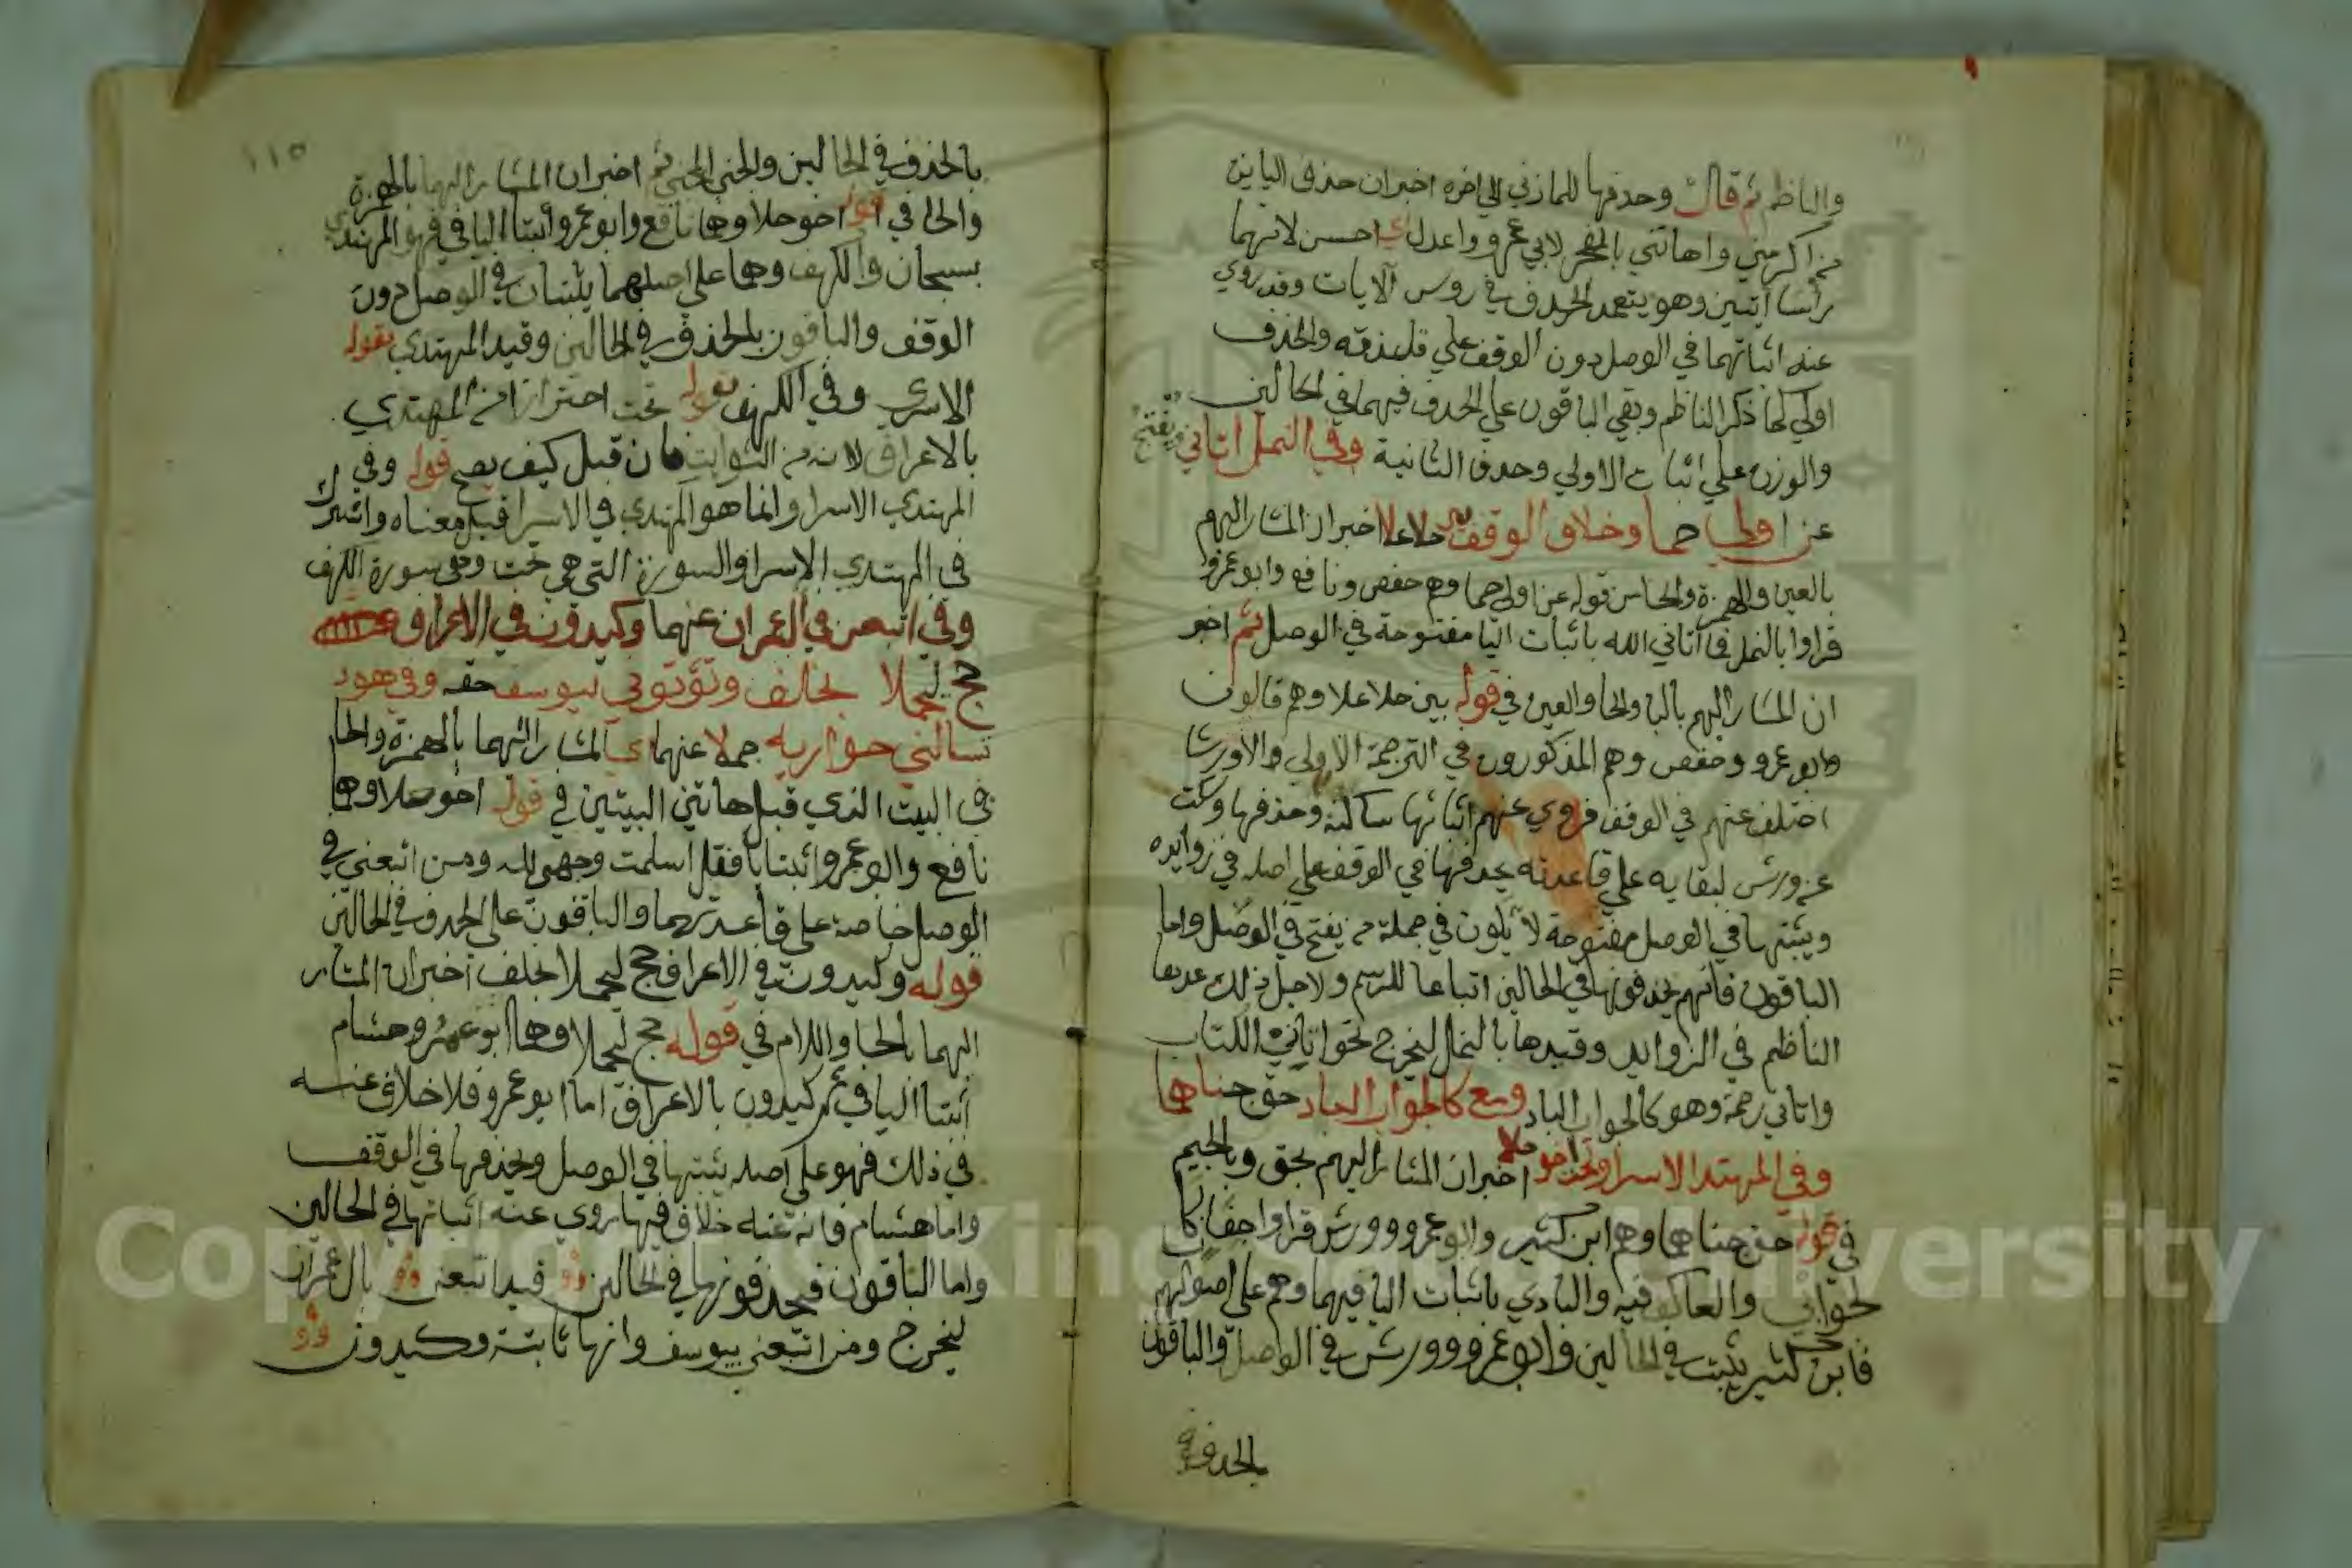 والناظم ثم قال وحذفها للمازني الى اخره اخبر ان حذف اليا ين
من اكرمني واهانني بالفجر لابي عمرو واعدل اي احسن لانهما
راسا آيتين وهو يتعمد الحذف في روس الآيات وقد روي
عنه اثباتهما في الوصل دون الوقف علي قاعدته والحذف
اولي كما ذكر الناظم وبقي الباقون علي الحذف فيهما في الحالين
والوزن علي اثبات الاولي وحذف الثانية وفي النمل اتاني ويفتح
عن اولي حما وخلاف الوقف بين حلا علا اخبر ان المشار اليهم
بالعين والهمزة والحا من قوله عن اولي حما وهم حفص ونافع وابو عمرو
قراوا بالنمل فما آتاني الله باثبات اليا مفتوحة في الوصل ثم اخبر
ان المشار اليهم بالبا والحا والعين في قوله بين حلا علا وهم قالون
وابو عمرو وحفص وهم المذكورون في الترجمة الاولي الا ورشا
اختلف عنهم في الوقف فروي عنهم اثباتها ساكنة وحذفها وسكت
عن ورش لبقايه علي قاعدته بحذفها في الوقف علي اصله في زوايده
ويثبتها في الوصل مفتوحة لا يكون في جملة من يفتح في الوصل واما
الباقون فانهم يحذفونها في الحالين اتباعا للرسم ولاجل ذلك عدها
الناظم في الزوايد وقيدها بالنمل ليخرج نحو اتاني الكتاب
واتاني رحمة وهو كالجواب الباد ومع كالجواب الباد حق جناهما
وفي المهتد الاسرا وتحت اخو حلا اخبر ان المشار اليهم بحق وبالجيم
في قوله حق جناهما وهم ابن كثير وابو عمرو وورش قراوا جفان كا
لجوابي والعاكف فيه والبادي باثبات اليا فيهما وهم علي اصولهم
فابن كثير يثبت في الحالين وابو عمرو وورش في الوصل والباقون
بالحذف في
١١٥
بالحذف في الحالين والجني المجني ثم اخبر ان المشار اليهما بالهمزة
والحا في قوله اخو حلا وهما نافع وابو عمرو اثبتا اليا في فهو المهتدي
بسبحان والكهف وهما علي اصلهما يثبتان في الوصل دون
الوقف والباقون بالحذف في الحالين وقيد المهتدي بقوله
الاسرى وفي الكهف بقوله تحت احترازا من المهتدي
بالاعراف لانه من الثوابت فان قيل كيف يصح قوله وفي
المهتدي الاسرا وانما هو المهتدي في الاسرا قيل معناه واشترك
في المهتدي الاسرا والسورة التي هي تحت وهي سورة الكهف
وفي اتبعن في ال عمران عنهما وكيدون في الاعراف
حج ليحملا بخلف وتؤتوني بيوسف حقه وفي هود
تسالني حواريه جملا عنهما اي المشار اليهما بالهمزة والحا
في البيت الذي قبل هاتين البيتين في قوله اخو حلا وهما
نافع وابو عمرو اثبتا يا فقل اسلمت وجهي لله ومن اتبعني في
الوصل خاصة علي قاعدتهما والباقون علي الحذف في الحالين
قوله وكيدون في الاعراف حج ليحملا بخلف اخبر ان المشار
اليهما بالحا واللام في قوله حج ليحملا وهما ابو عمرو وهشام
اثبتا اليا في ثم كيدون بالاعراف اما ابو عمرو فلا خلاف عنه
في ذلك فهو علي اصله يثبتها في الوصل ويحذفها في الوقف
واما هشام فانه عنه خلاف فيها روي عنه اثباتها في الحالين
واما الباقون فيحذفونها في الحالين وقيد اتبعن بال عمران
ليخرج ومن اتبعني بيوسف وانها ثابتة وكيدون
Copyright © King Saud University